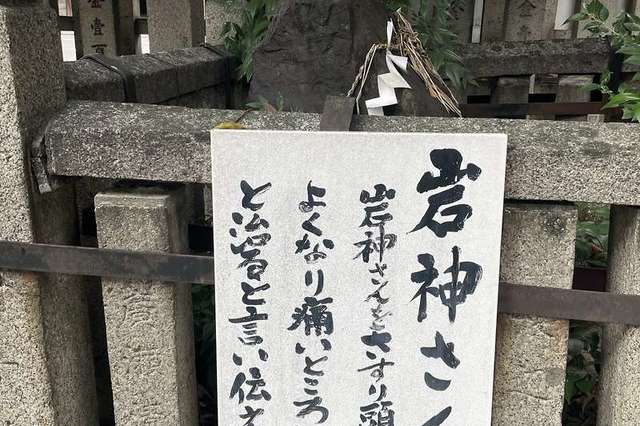 岩神さん
岩神さんをさすり頭
よくなり痛いところ
と治ると言い伝え